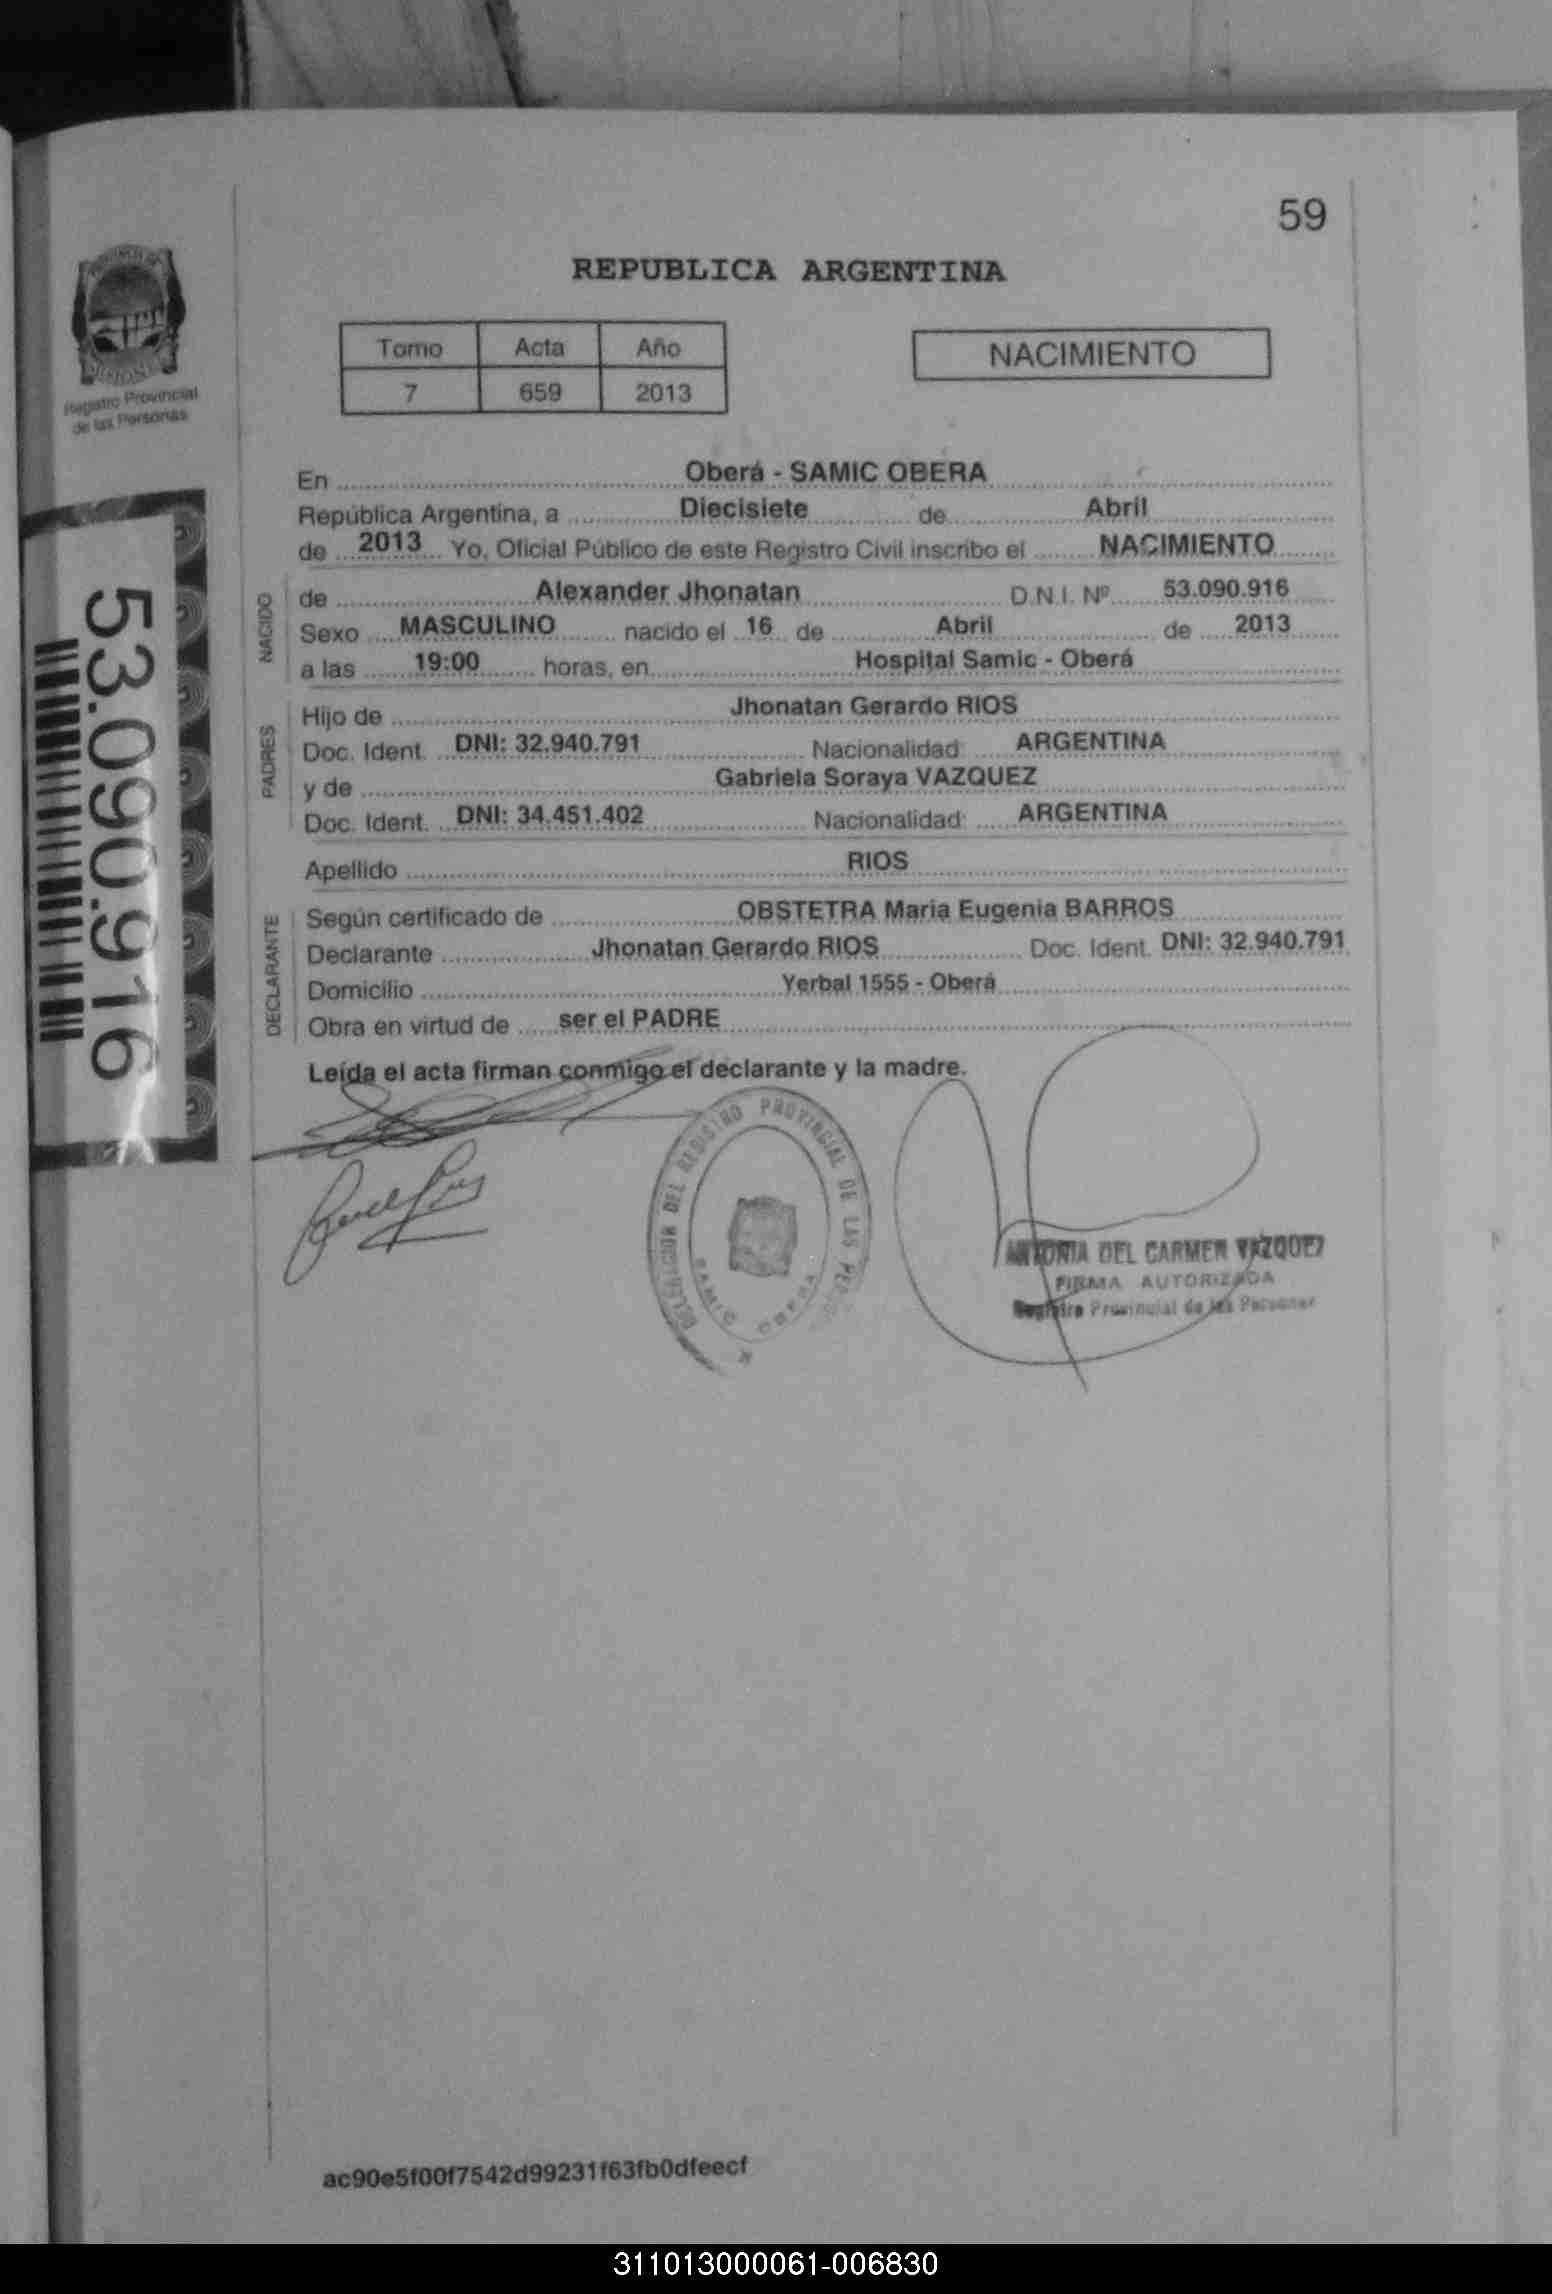 59
REPUBLICA ARGENTINA
Registro Provincial
de las Personas
Tomo Acta Año
7 659 2013
NACIMIENTO
53.090.916
En Oberá - SAMIC OBERA
República Argentina, a Diecisiete de Abril
de 2013 Yo, Oficial Público de este Registro Civil inscribo el NACIMIENTO
NACIDO
de Alexander Jhonatan D.N.I. Nº 53.090.916
Sexo MASCULINO nacido el 16 de Abril de 2013
a las 19:00 horas, en Hospital Samic - Oberá
PADRES
Hijo de Jhonatan Gerardo RIOS
Doc. Ident. DNI: 32.940.791 Nacionalidad: ARGENTINA
y de Gabriela Soraya VAZQUEZ
Doc. Ident. DNI: 34.451.402 Nacionalidad: ARGENTINA
Apellido RIOS
DECLARANTE
Según certificado de OBSTETRA Maria Eugenia BARROS
Declarante Jhonatan Gerardo RIOS Doc. Ident. DNI: 32.940.791
Domicilio Yerbal 1555 - Oberá
Obra en virtud de ser el PADRE
Leída el acta firman conmigo el declarante y la madre.
DELEGACION DEL REGISTRO PROVINCIAL DE LAS
SAMIC OBERA
ANTONIA DEL CARMEN VAZQUEZ
FIRMA AUTORIZADA
Registro Provincial de las Personas
ac90e5f00f7542d99231f63fb0dfeecf
311013000061-006830